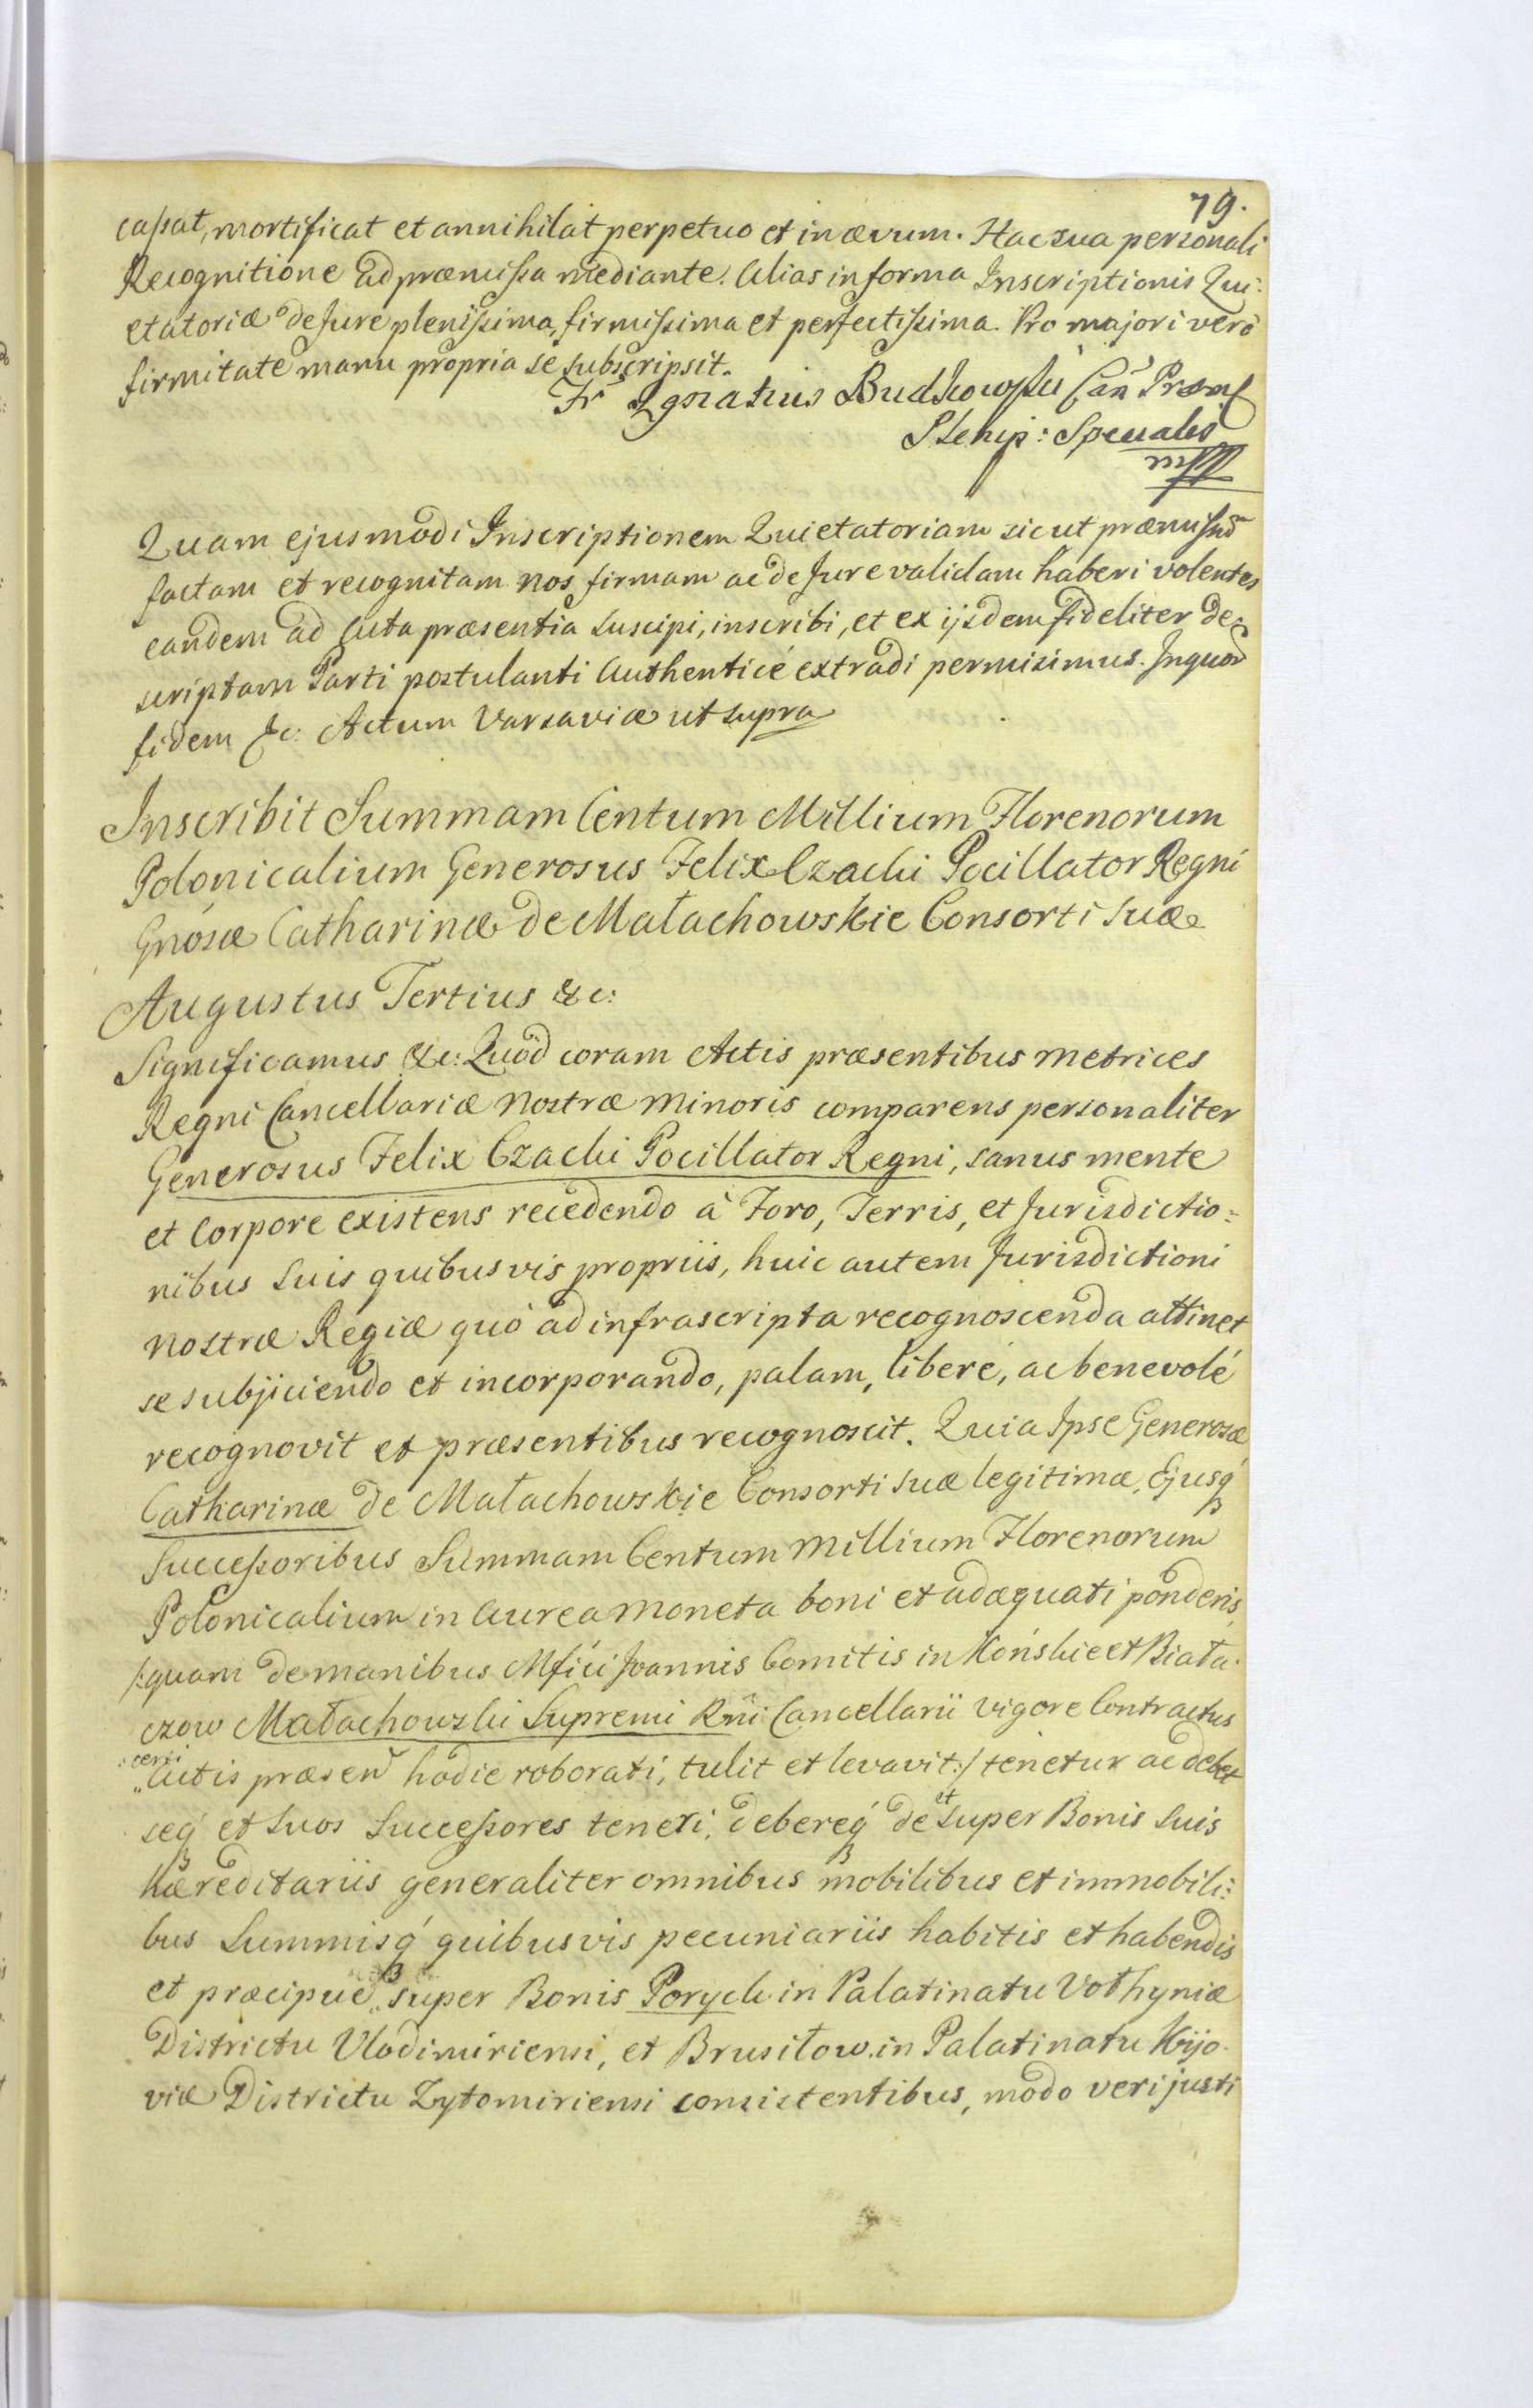 79.
cassat, mortificat et annihilat perpetuo et in ævum. Hac sua personali
Recognitione ad præmissa mediante. Alias in forma Inscriptionis Qui:
etatoriæ de Jure plenissima, firmissima et perfectissima. Pro majori vero
firmitate manu propria se subscripsit.
Fr Ignatius Budkowski Can Præm
Plenip: Specialis
mpp
Quam ejusmodi Inscriptionem Quietatoriam sicut præmissũ
factam et recognitam nos firmam ac de Jure validam haberi volentes
eandem ad Acta præsentia suscipi, inscribi, et ex ijsdem fideliter de:
scriptam Parti postulanti Authenticé extradi permisimus. In quor
fidem &c: Actum Varsaviæ ut supra
Inscribit Summam Centum Millium Florenorum
Polonicalium Generosus Felix Czacki Pocillator Regni
Gnosæ Catharinæ de Małachowskie Consorti suæ
Augustus Tertius &c:
Significamus &c: Quod coram Actis præsentibus Metrices
Regni Cancellariæ Nostræ Minoris comparens personaliter
Generosus Felix Czacki Pocillator Regni, sanus mente
et Corpore existens recedendo à Foro, Terris, et Jurisdictio=
nibus suis quibusvis propriis, huic autem Jurisdictioni
Nostræ Regiæ quò ad infrascripta recognoscenda attinet
se subjiciendo et incorporando, palam, liberé, ac benevolé
recognovit et præsentibus recognoscit. Quia Ipse Generosæ
Catharinæ de Małachowskie Consorti suæ legitimæ, Ejusq́
Successoribus Summam Centum Millium Florenorum
Polonicalium in Aurea Moneta boni et adæquati ponderis
/:quam de manibus Mfici Joannis Comitis in Końskie et Biała:
czow Małachowski Supremi Rñi Cancellarii vigore Contractus
certi
Actis præsen hodie roborati, tulit et levavit:/ tenetur ac debet
seq́ et suos Successores teneri, debereq́ de et super Bonis suis
hæreditariis generaliter omnibus mobilibus et immobili:
bus Summisq́ quibusvis pecuniariis habitis et habendis
et præcipuè super Bonis Poryck in Palatinatu Volhyniæ
Districtu Vlodimiriensi, et Brusiłow in Palatinatu Kijo:
viæ Districtu Zytomiriensi consistentibus, modo veri justi